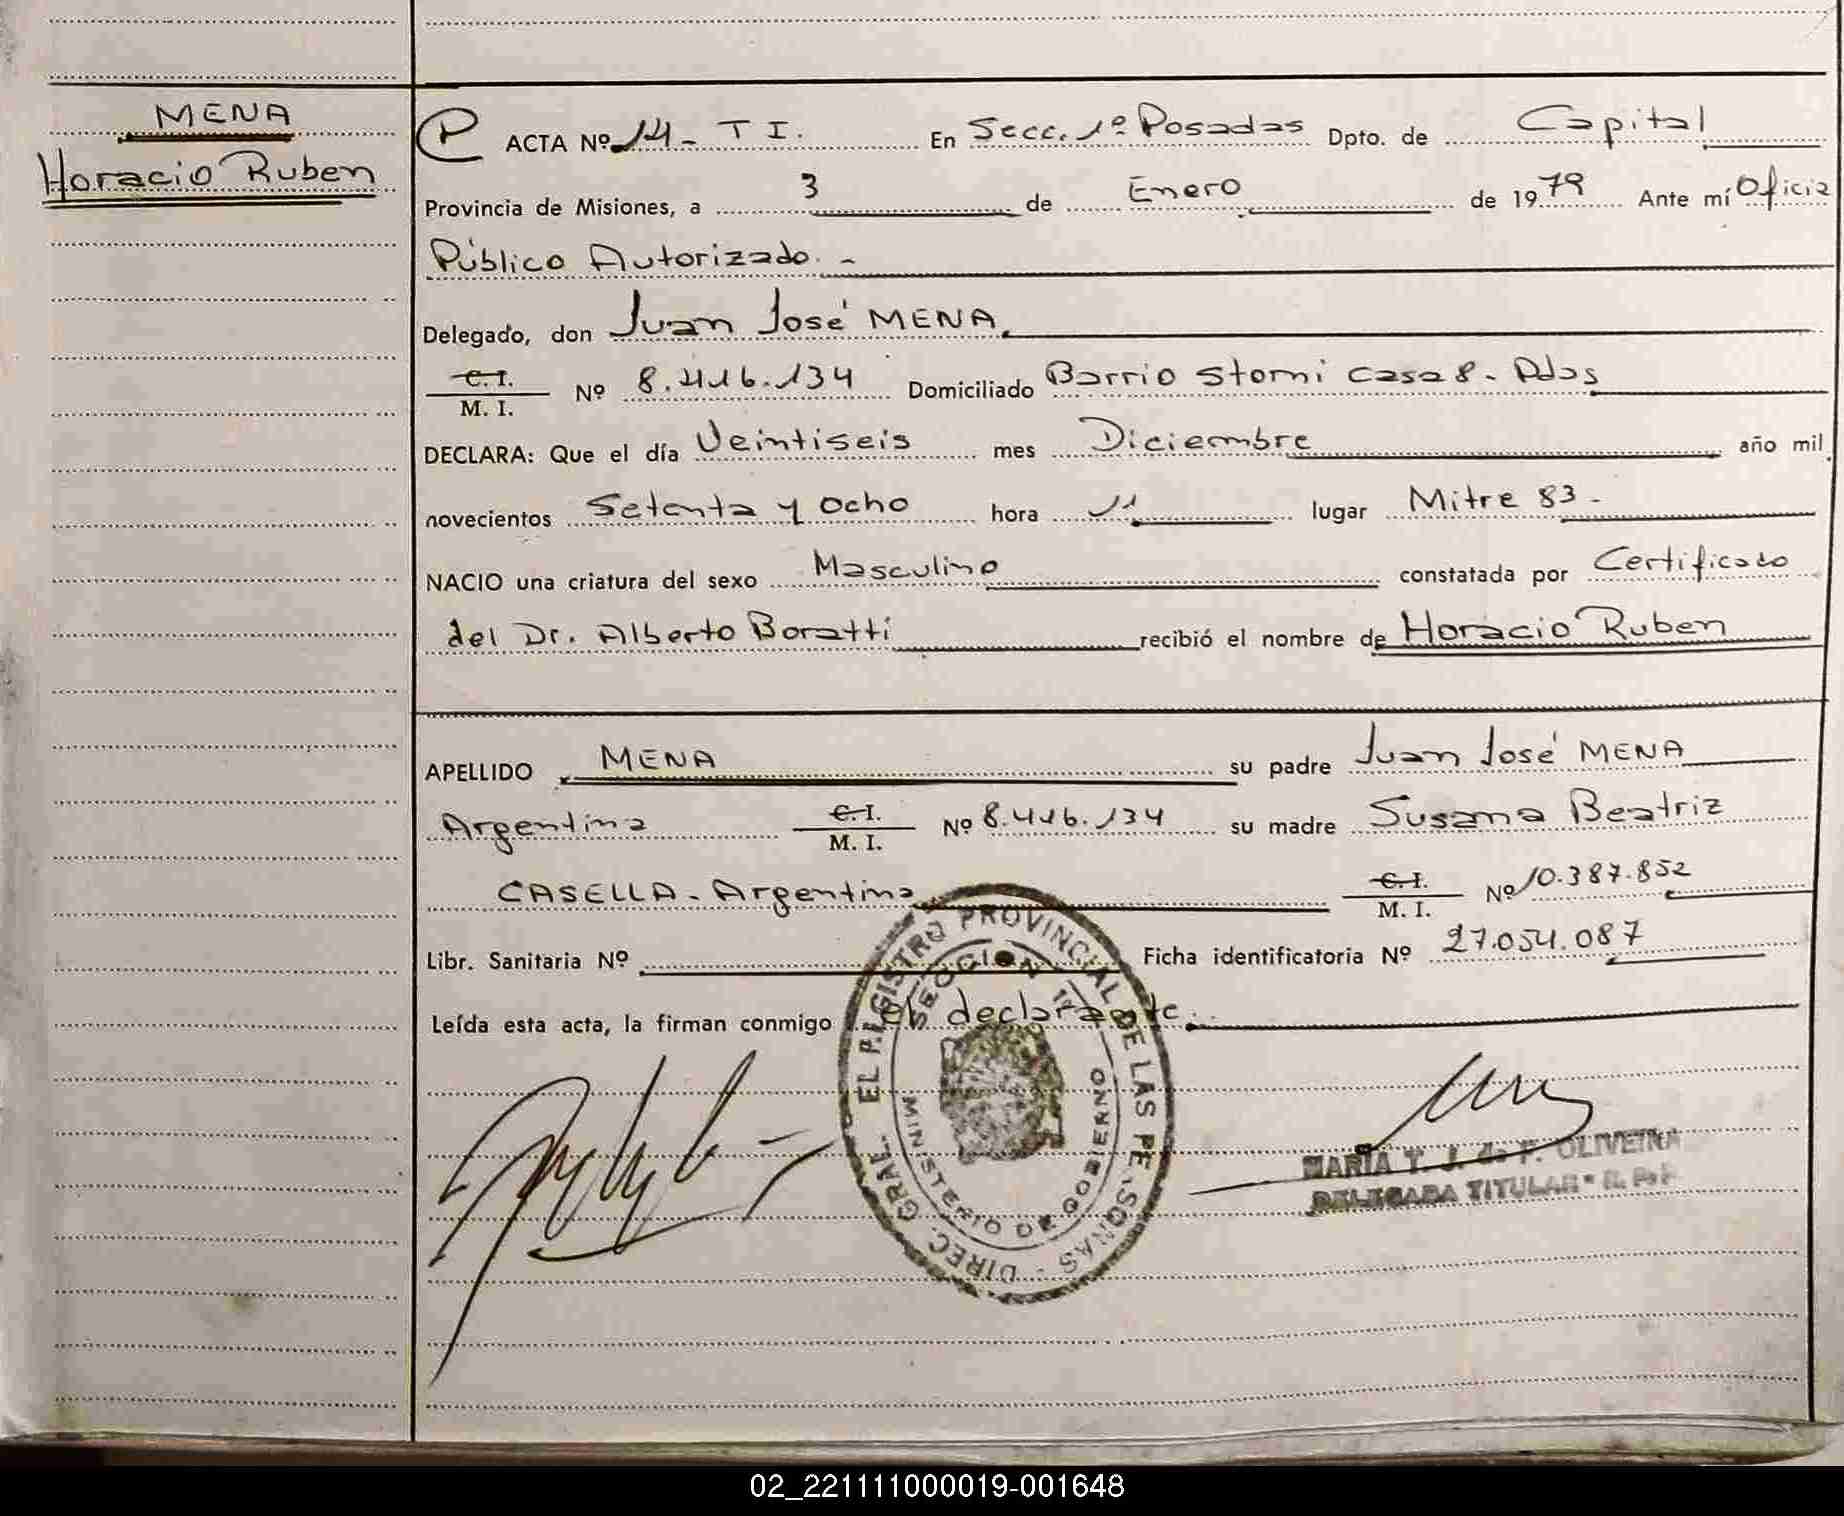 MENA
Horacio Ruben
P ACTA Nº 14 - T I. En Secc. 1º Posadas Dpto. de Capital
Provincia de Misiones, a 3 de Enero de 1979 Ante mí Oficia
Público Autorizado. -
Delegado, don Juan José MENA.
C. I.
M. I. Nº 8.416.134 Domiciliado Barrio Stomi casa 8 - Pdas
DECLARA: Que el día Veintiseis mes Diciembre año mil
novecientos Setenta y Ocho hora 11 lugar Mitre 83 -
NACIO una criatura del sexo Masculino constatada por Certificado
del Dr. Alberto Boratti recibió el nombre de Horacio Ruben
APELLIDO MENA su padre Juan José MENA
Argentina C. I.
M. I. Nº 8.416.134 su madre Susana Beatriz
CASELLA - Argentina C. I.
M. I. Nº 10.387.852
Libr. Sanitaria Nº Ficha identificatoria Nº 27.054.087
Leída esta acta, la firman conmigo el declarante.
DIREC. GRAL. EL REGISTRO PROVINCIAL DE LAS PERSONAS -
SECCION 1ª
MINISTERIO DE GOBIERNO
MARIA T. J. de F. OLIVEIRA
DELEGADA TITULAR - R. P. P.
02_221111000019-001648